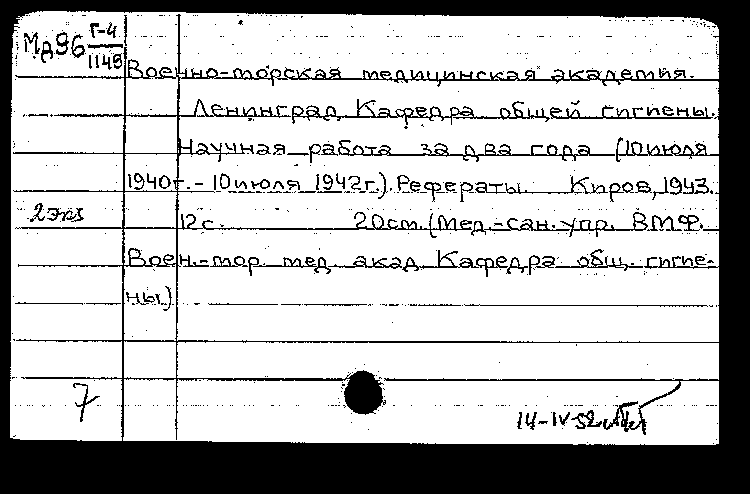 Мд96 Г-4
1148
Военно-морская медицинская академия.
Ленинград, Кафедра общей гигиены.
Научная работа за два года (10 июля
1940г. - 10 июля 1942г.). Рефераты. Киров, 1943.
2 экз
12 с. 20 см. (Мед.-сан. упр. ВМФ.
Воен.-мор. мед. акад. Кафедра общ. гигие-
ны.)
7
14-IV-52